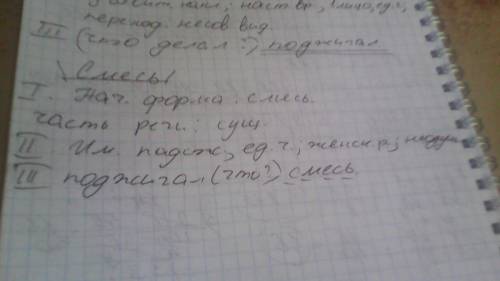 наст вр, 1 лицо, ед.ч,
переход. несов вид.
III (что делал?) поджигал
\Смесь/
I. Нач. форма: смесь.
часть речи: сущ.
II Им. падеж, ед. ч.; женск р;
III поджигал (что?) смесь.